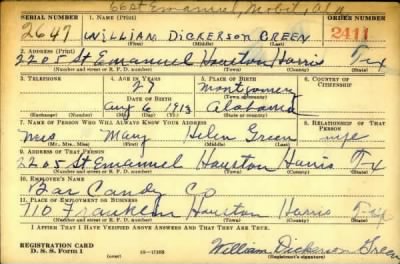 66 St Emanuel, Mobile, Ala
SERIAL NUMBER 1. NAME (Print) ORDER NUMBER
2647 WILLIAM DICKERSON GREEN 2411
(First) (Middle) (Last)
2. ADDRESS (Print)
2205 St Emanuel Houston Harris Tex
(Number and street or R. F. D. number) (Town) (County) (State)
3. TELEPHONE 4. AGE IN YEARS 5. PLACE OF BIRTH 6. COUNTRY OF CITIZENSHIP
27 Montgomery
DATE OF BIRTH (Town or county)
Aug 6 1913 Alabama
(Exchange) (No.) (Mo.) (Day) (Yr.) (State or country)
7. NAME OF PERSON WHO WILL ALWAYS KNOW YOUR ADDRESS 8. RELATIONSHIP OF THAT PERSON
Mrs Mary Helen Green wife
(Mr., Mrs., Miss) (First) (Middle) (Last)
9. ADDRESS OF THAT PERSON
2205 St Emanuel Houston Harris Tx
(Number and street or R. F. D. number) (Town) (County) (State)
10. EMPLOYER'S NAME
Bar Candy Co
11. PLACE OF EMPLOYMENT OR BUSINESS
710 Franklin Houston Harris
(Number and street or R. F. D. number) (Town) (County) (State)
I AFFIRM THAT I HAVE VERIFIED ABOVE ANSWERS AND THAT THEY ARE TRUE.
REGISTRATION CARD
D. S. S. Form 1 William Dickerson Green
(Registrant's signature)